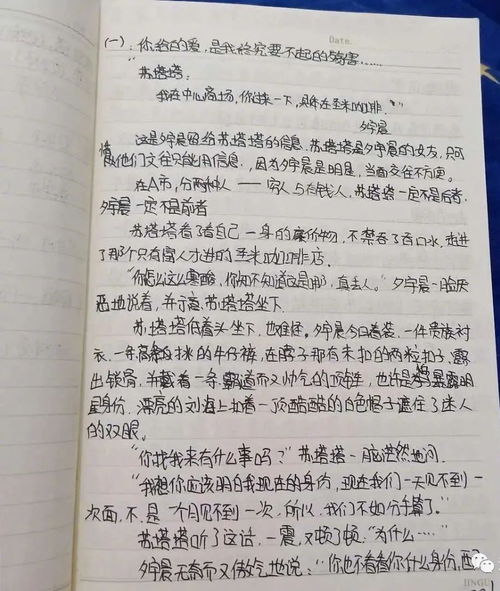 Date.
(一):你给的爱,是我终究要不起的伤害……
"苏塔塔:
我在中心商场,你过来一下,具体在圣米咖啡."
夕宇晨
这是夕宇晨留给苏塔塔的信息.苏塔塔是夕宇晨的女友,只可
惜他们交往只能用信息.,因为夕宇晨是明星,当面交往不方便。
在A市,分两种人——穷人与有钱人,苏塔塔一定不是后者.
夕宇晨一定不是前者
苏塔塔看了看自己一身的廉价物,不禁吞了吞口水,走进
了那个只有富人才进的圣米咖啡店.
"你怎么这么寒酸,你知不知道这是哪,真丢人。"夕宇晨一脸厌
恶地说着,并示意苏塔塔坐下.
苏塔塔低着头坐下.也难怪.夕宇晨今日着装.一件贵族衬
衣.一条高条白挑的牛仔裤,在脖子那有未扣的两粒扣子.露
出锁骨.并戴着一条霸道而又帅气的项链,也许是怕暴露明
星身份.漂亮的刘海上扣着一顶酷酷的白色帽子遮住了迷人
的双眼。
"你找我来有什么事吗?"苏塔塔一脸茫然地问.
"我想你应该明白我现在的身份,现在我们一天见不到一
次面,不.是一个月见不到一次.所以.我们不如分手算了."
苏塔塔听了这话.一震,又顿了顿."为什么…."
夕宇晨无奈而又傲气地说:"你也不看看你什么身份,配
JINGU